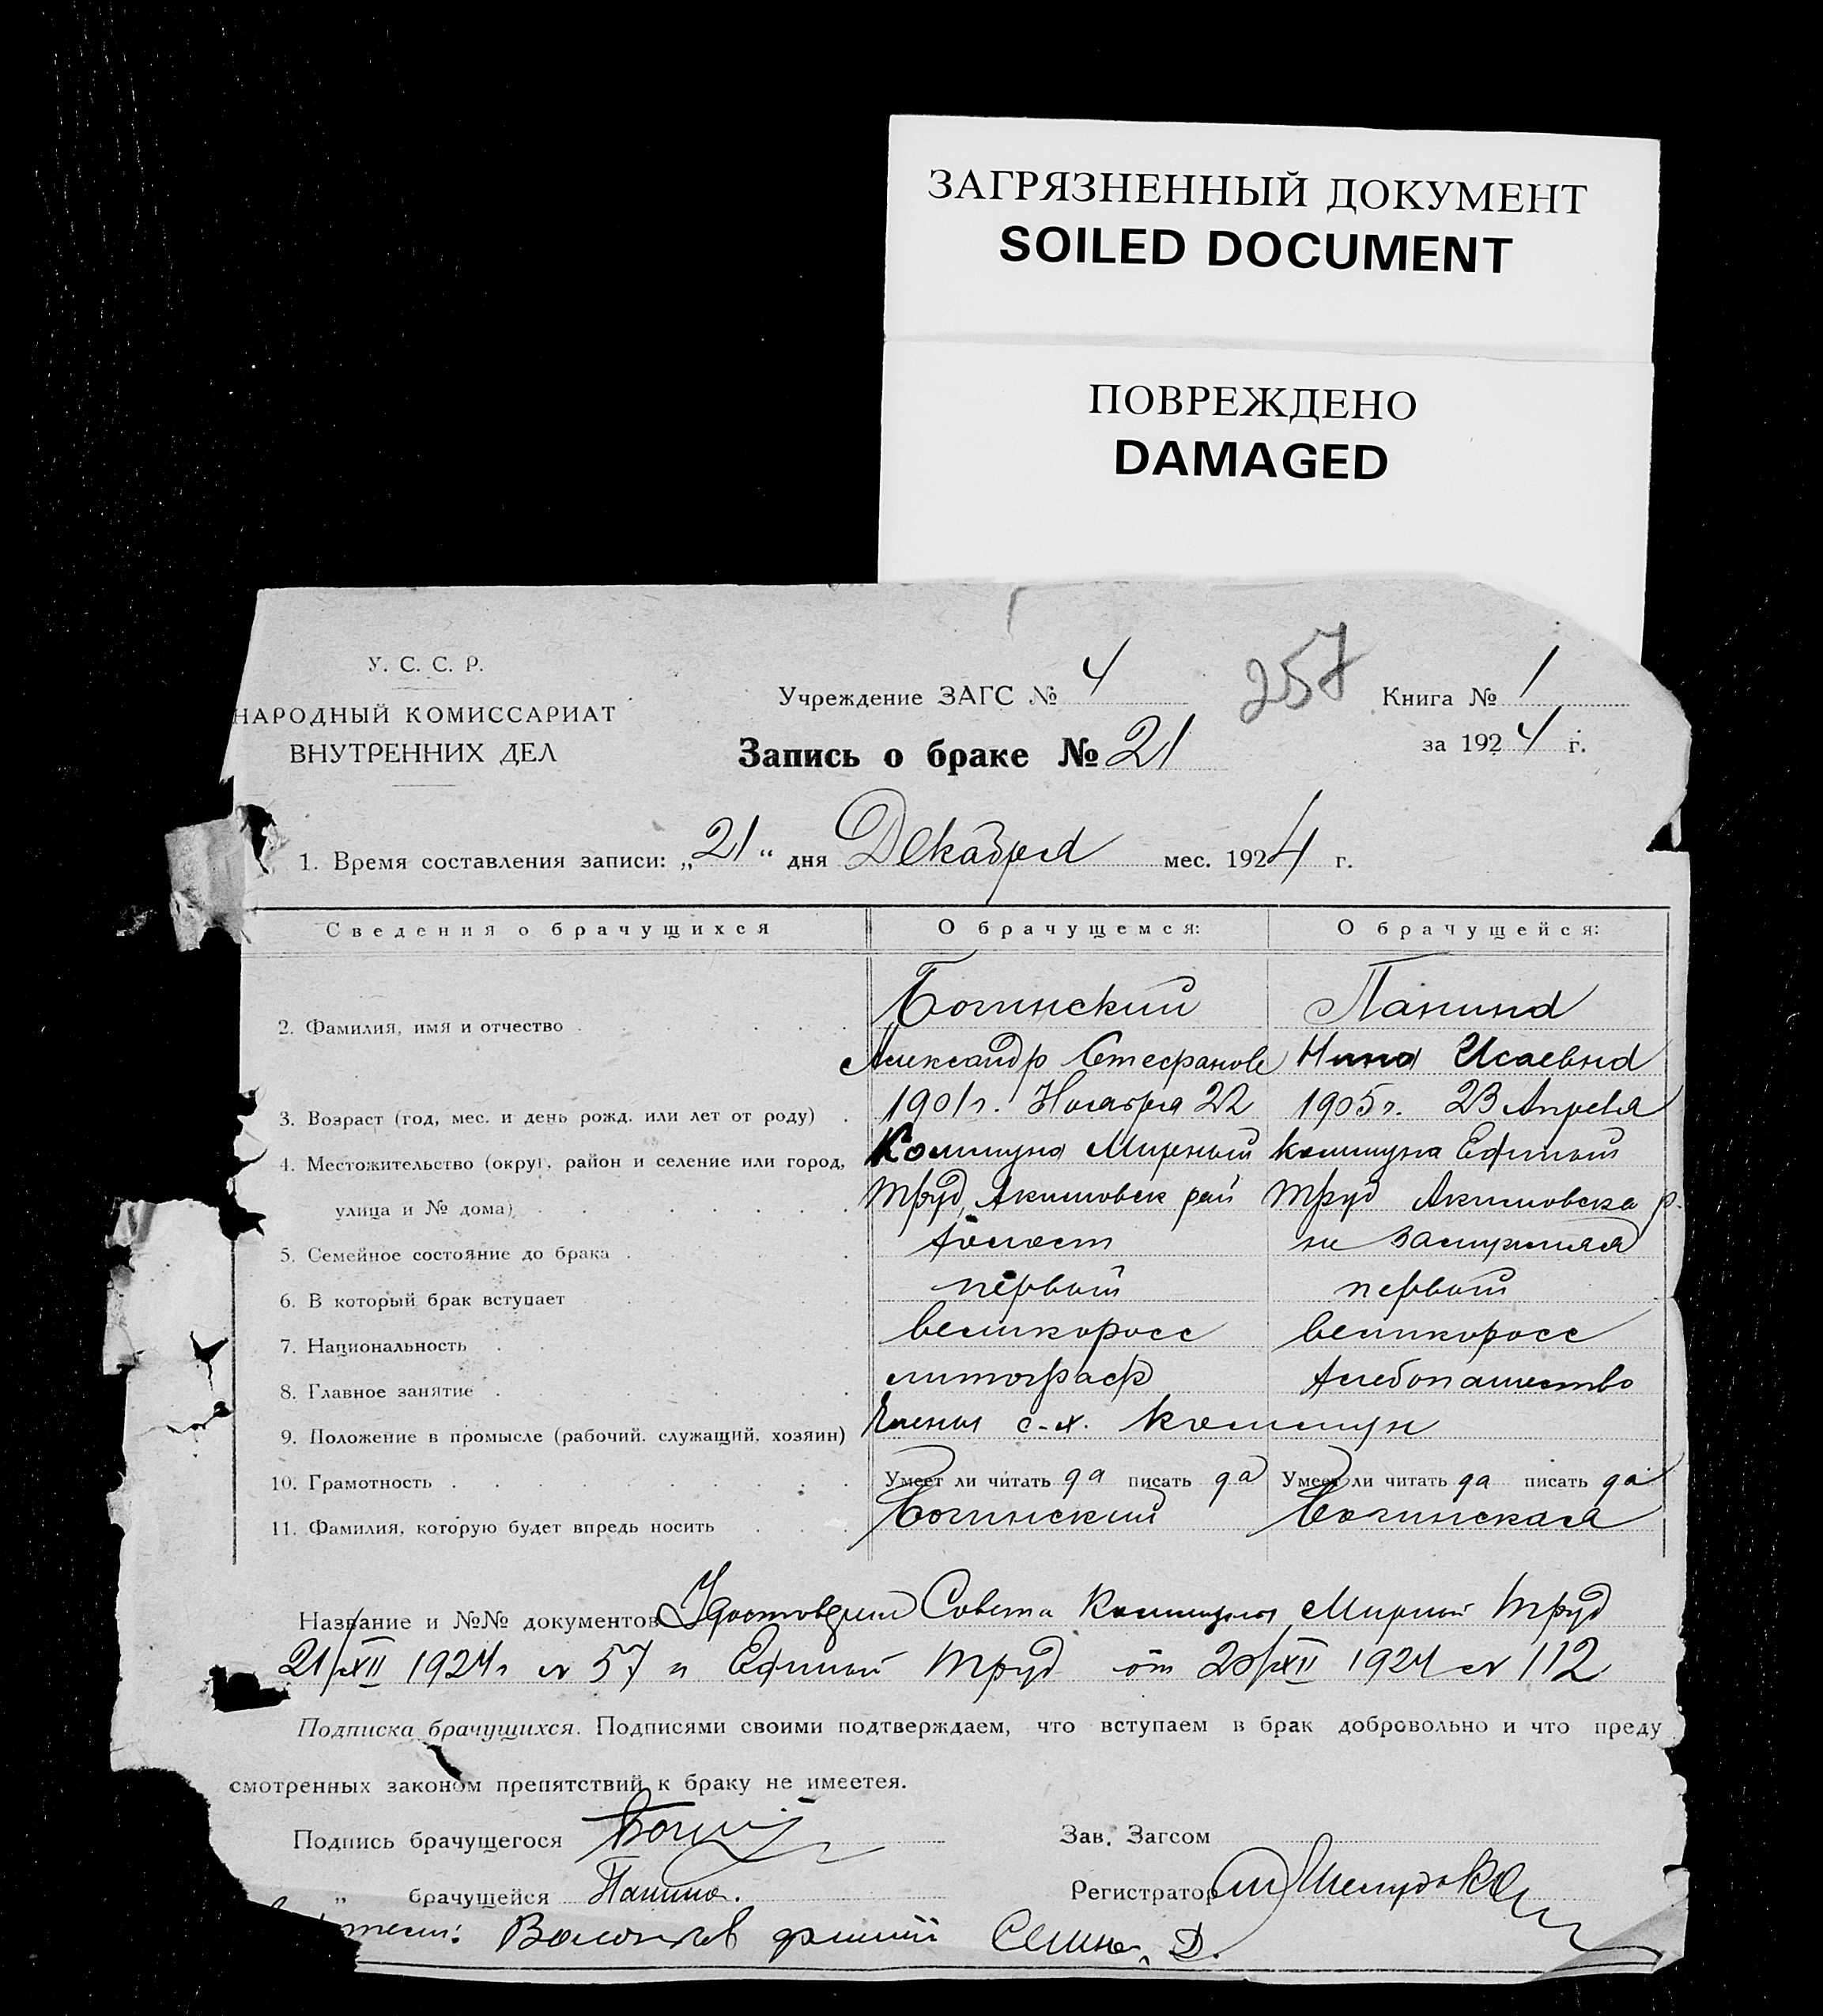 ЗАГРЯЗНЕННЫЙ ДОКУМЕНТ
SOILED DOCUMENT
ПОВРЕЖДЕНО
DAMAGED
У. С. С. Р.
НАРОДНЫЙ КОМИССАРИАТ
ВНУТРЕННИХ ДЕЛ
Учреждение ЗАГС № 4
257
Книга № 1
за 1924 г.
Запись о браке № 21
1. Время составления записи: „21“ дня Декабря мес. 1924 г.
Сведения о брачущихся О брачущемся: О брачущейся:
2. Фамилия, имя и отчество Богинский Панина
Александр Стефанов Нина Исаевна
3. Возраст (год, мес. и день рожд. или лет от роду) 1901 г. Ноября 22 1905 г. 23 Апреля
4. Местожительство (округ, район и селение или город, Коммуна Мирный коммуна Единый
улица и № дома) труд, Акимовск рай труд Акимовска р.
5. Семейное состояние до брака холост не замужняя
6. В который брак вступает первый первый
7. Национальность великоросс великоросс
8. Главное занятие литограф хлебопашество
9. Положение в промысле (рабочий, служащий, хозяин) Члены с-х. коммун
10. Грамотность Умеет ли читать да писать да Умеет ли читать да писать да
11. Фамилия, которую будет впредь носить Богинский Богинская
Название и №№ документов Удостоверен Совета Коммуны Мирный труд
21/XII 1924 г № 57 и Единый труд от 20/XII 1924 № 112
Подписка брачущихся. Подписями своими подтверждаем, что вступаем в брак добровольно и что преду
смотренных законом препятствий к браку не имеется.
Подпись брачущегося Зав. Загсом
„ брачущейся Панина. Регистратор